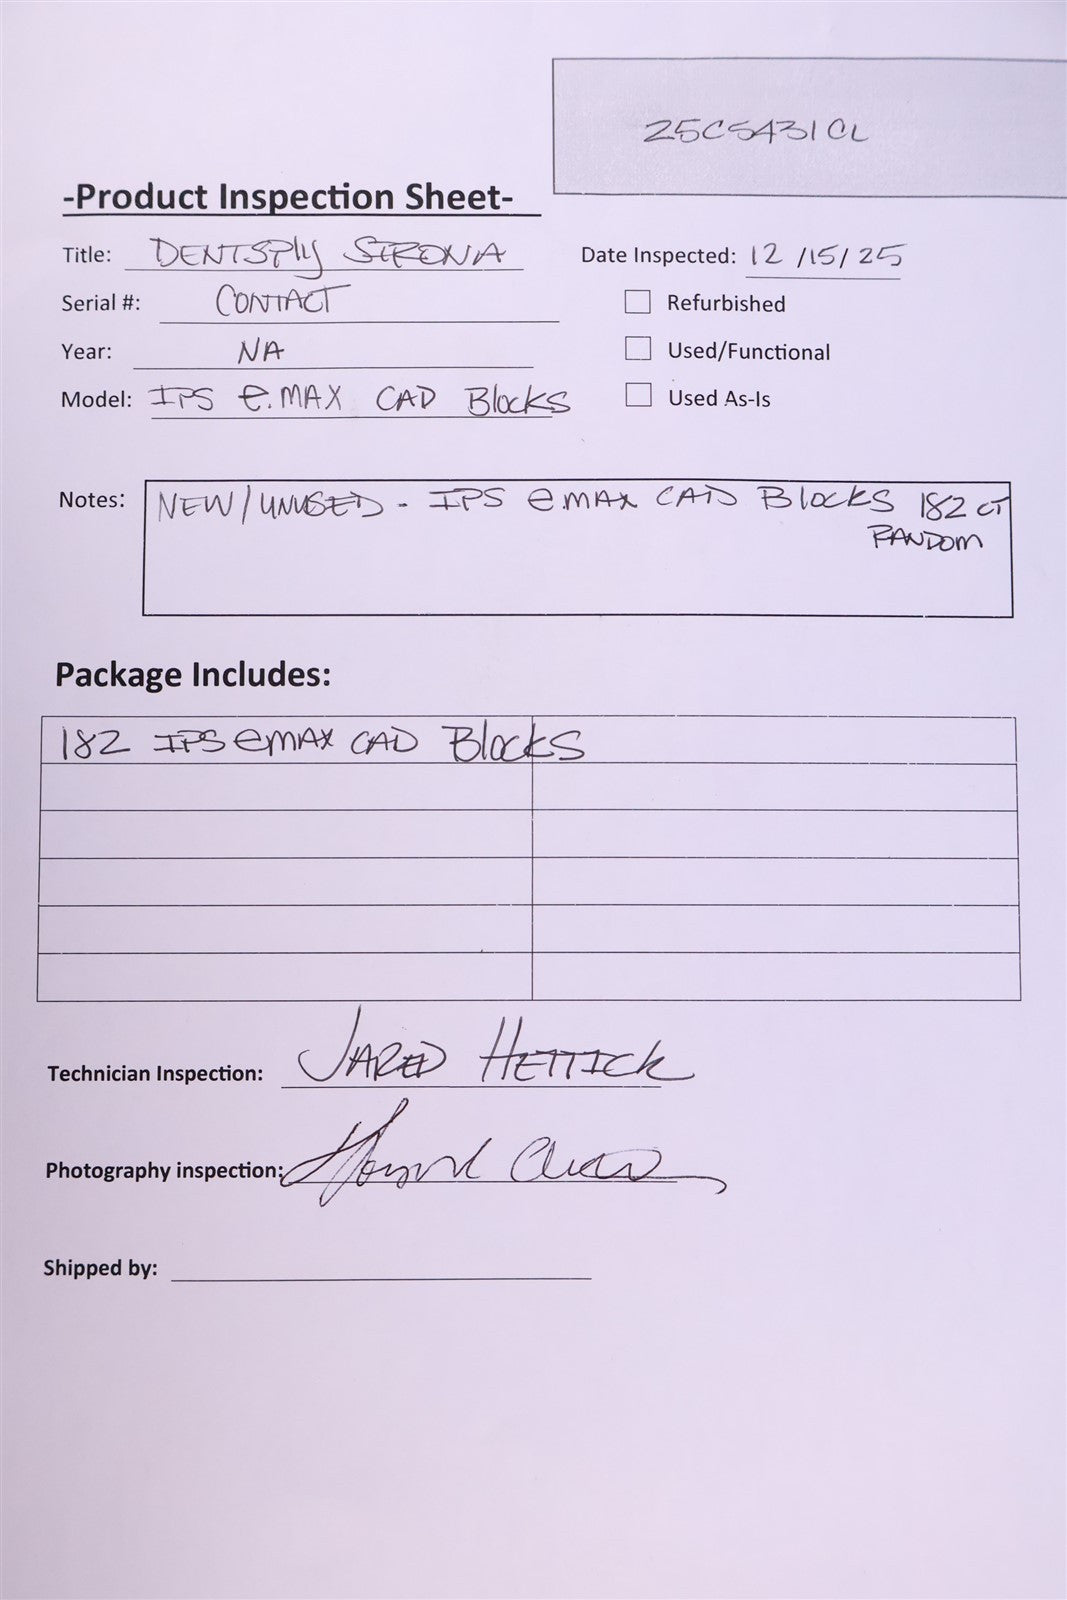 25C5431CL
-Product Inspection Sheet-
Title: DENTSPLY SIRONA
Date Inspected: 12/15/25
Serial #: CONTACT
Refurbished
Year: NA
Used/Functional
Model: IPS e.MAX CAD Blocks
Used As-Is
Notes: NEW/UNUSED - IPS e.MAX CAD Blocks 182 CT
RANDOM
Package Includes:
182 IPS eMAX CAD Blocks
Technician Inspection: JARED HETTICK
Photography inspection:
Shipped by: